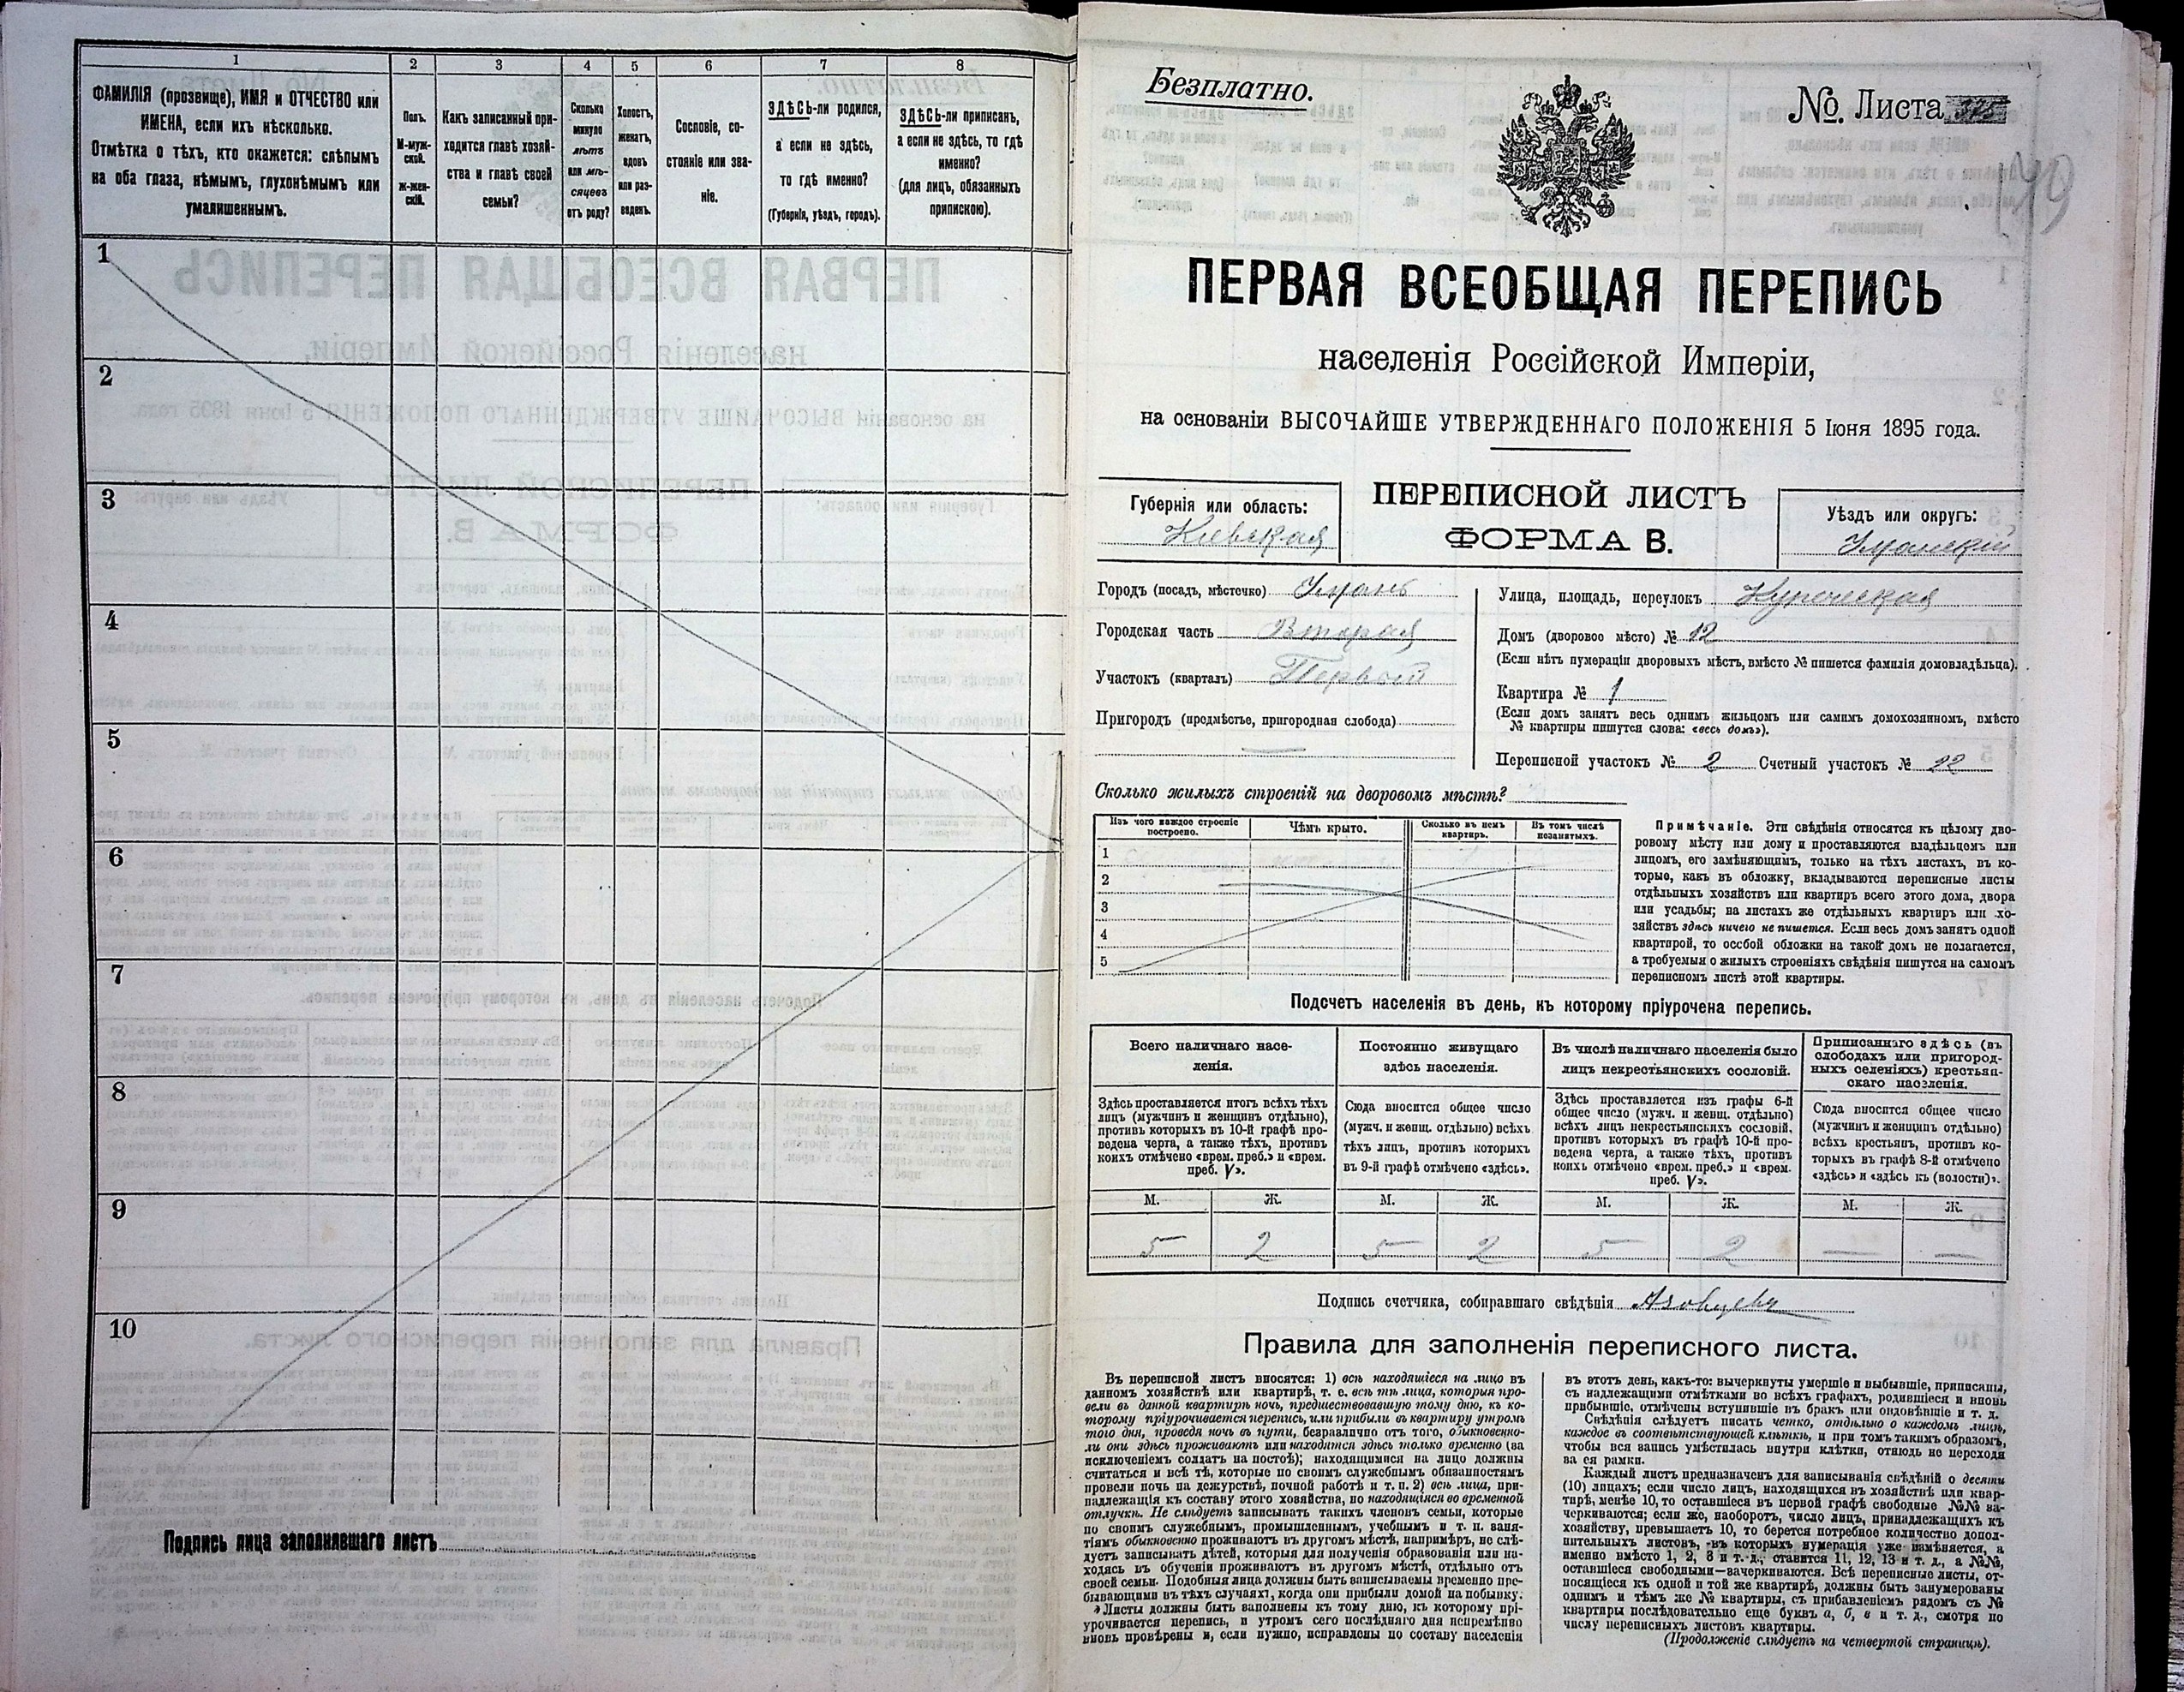 1
ФАМИЛІЯ (прозвище), ИМЯ и ОТЧЕСТВО или
ИМЕНА, если ихъ нѣсколько.
Отмѣтка о тѣхъ, кто окажется: слѣпымъ
на оба глаза, нѣмымъ, глухонѣмымъ или
умалишеннымъ.
2
Полъ.
М-муж-
ской.
Ж-жен-
скій.
3
Какъ записанный при-
ходится главѣ хозяй-
ства и главѣ своей
семьи?
4
Сколько
минуло
лѣтъ
или мѣ-
сяцевъ
отъ роду?
5
Холостъ,
женатъ,
вдовъ
или раз-
веденъ.
6
Сословіе, со-
стояніе или зва-
ніе.
7
ЗДѢСЬ-ли родился,
а если не здѣсь,
то гдѣ именно?
(Губернія, уѣздъ, городъ).
8
ЗДѢСЬ-ли приписанъ,
а если не здѣсь, то гдѣ
именно?
(для лицъ, обязанныхъ
припискою).
1
2
3
4
5
6
7
8
9
10
Подпись лица заполнявшаго листъ
Безплатно.
№. Листа 375
149
ПЕРВАЯ ВСЕОБЩАЯ ПЕРЕПИСЬ
населенія Россійской Имперіи,
на основаніи ВЫСОЧАЙШЕ УТВЕРЖДЕННАГО ПОЛОЖЕНІЯ 5 Іюня 1895 года.
Губернія или область:
Кіевская
ПЕРЕПИСНОЙ ЛИСТЪ
ФОРМА В.
Уѣздъ или округъ:
Уманскій
Городъ (посадъ, мѣстечко) Умань
Городская часть Вторая
Участокъ (кварталъ) Первый
Пригородъ (предмѣстье, пригородная слобода)
Улица, площадь, переулокъ
Домъ (дворовое мѣсто) № 12
(Если нѣтъ нумераціи дворовыхъ мѣстъ, вмѣсто № пишется фамилія домовладѣльца).
Квартира № 1
(Если домъ занятъ весь однимъ жильцомъ или самимъ домохозяиномъ, вмѣсто
№ квартиры пишутся слова: «весь домъ»).
Переписной участокъ № 2 Счетный участокъ № 22
Сколько жилыхъ строеній на дворовомъ мѣстѣ?
Изъ чего каждое строеніе
построено.
Чѣмъ крыто.
Сколько въ немъ
квартиръ.
Въ томъ числѣ
незанятыхъ.
1
2
3
4
5
Примѣчаніе. Эти свѣдѣнія относятся къ цѣлому дво-
ровому мѣсту или дому и проставляются владѣльцемъ или
лицомъ, его замѣняющимъ, только на тѣхъ листахъ, въ ко-
торые, какъ въ обложку, вкладываются переписные листы
отдѣльныхъ хозяйствъ или квартиръ всего этого дома, двора
или усадьбы; на листахъ же отдѣльныхъ квартиръ или хо-
зяйствъ здѣсь ничего не пишется. Если весь домъ занятъ одной
квартирой, то особой обложки на такой домъ не полагается,
а требуемыя о жилыхъ строеніяхъ свѣдѣнія пишутся на самомъ
переписномъ листѣ этой квартиры.
Подсчетъ населенія въ день, къ которому пріурочена перепись.
Всего наличнаго насе-
ленія.
Здѣсь проставляется итогъ всѣхъ тѣхъ
лицъ (мужчинъ и женщинъ отдѣльно),
противъ которыхъ въ 10-й графѣ про-
ведена черта, а также тѣхъ, противъ
коихъ отмѣчено «врем. преб.» и «врем.
преб. V».
Постоянно живущаго
здѣсь населенія.
Сюда вносится общее число
(мужч. и женщ. отдѣльно) всѣхъ
тѣхъ лицъ, противъ которыхъ
въ 9-й графѣ отмѣчено «здѣсь».
Въ числѣ наличнаго населенія было
лицъ некрестьянскихъ сословій.
Здѣсь проставляется изъ графы 6-й
общее число (мужч. и женщ. отдѣльно)
всѣхъ лицъ некрестьянскихъ сословій,
противъ которыхъ въ графѣ 10-й про-
ведена черта, а также тѣхъ, противъ
коихъ отмѣчено «врем. преб.» и «врем.
преб. V».
Приписаннаго здѣсь (въ
слободахъ или пригород-
ныхъ селеніяхъ) крестьян-
скаго населенія.
Сюда вносится общее число
(мужчинъ и женщинъ отдѣльно)
всѣхъ крестьянъ, противъ ко-
торыхъ въ графѣ 8-й отмѣчено
«здѣсь» и «здѣсь къ (волости)».
М. Ж. М. Ж. М. Ж. М. Ж.
5 2 5 2 5 2 — —
Подпись счетчика, собиравшаго свѣдѣнія
Правила для заполненія переписного листа.
Въ переписной листъ вносятся: 1) всѣ находящіеся на лицо въ
данномъ хозяйствѣ или квартирѣ, т. е. всѣ тѣ лица, которыя про-
вели въ данной квартирѣ ночь, предшествовавшую тому дню, къ ко-
торому пріурочивается перепись, или прибыли въ квартиру утромъ
того дня, проведя ночь въ пути, безразлично отъ того, обыкновенно-
ли они здѣсь проживаютъ или находятся здѣсь только временно (за
исключеніемъ солдатъ на постоѣ); находящимися на лицо должны
считаться и всѣ тѣ, которые по своимъ служебнымъ обязанностямъ
провели ночь на дежурствѣ, ночной работѣ и т. п. 2) всѣ лица, при-
надлежащія къ составу этого хозяйства, но находящіяся во временной
отлучкѣ. Не слѣдуетъ записывать такихъ членовъ семьи, которые
по своимъ служебнымъ, промышленнымъ, учебнымъ и т. п. заня-
тіямъ обыкновенно проживаютъ въ другомъ мѣстѣ, напримѣръ, не слѣ-
дуетъ записывать дѣтей, которыя для полученія образованія или на-
ходясь въ обученіи проживаютъ въ другомъ мѣстѣ, отдѣльно отъ
своей семьи. Подобныя лица должны быть записываемы временно пре-
бывающими въ тѣхъ случаяхъ, когда они прибыли домой на побывку.
Листы должны быть заполнены къ тому дню, къ которому прі-
урочивается перепись, и утромъ сего послѣдняго дня непремѣнно
вновь провѣрены и, если нужно, исправлены по составу населенія
въ этотъ день, какъ-то: вычеркнуты умершіе и выбывшіе, приписаны,
съ надлежащими отмѣтками во всѣхъ графахъ, родившіеся и вновь
прибывшіе, отмѣчены вступившіе въ бракъ или овдовѣвшіе и т. д.
Свѣдѣнія слѣдуетъ писать четко, отдѣльно о каждомъ лицѣ,
каждое въ соотвѣтствующей клѣткѣ, и при томъ такимъ образомъ,
чтобы вся запись умѣстилась внутри клѣтки, отнюдь не переходя
за ея рамки.
Каждый листъ предназначенъ для записыванія свѣдѣній о десяти
(10) лицахъ; если число лицъ, находящихся въ хозяйствѣ или квар-
тирѣ, менѣе 10, то оставшіеся въ первой графѣ свободные №№ за-
черкиваются; если же, наоборотъ, число лицъ, принадлежащихъ къ
хозяйству, превышаетъ 10, то берется потребное количество допол-
нительныхъ листовъ, въ которыхъ нумерація уже измѣняется, а
именно вмѣсто 1, 2, 3 и т. д., ставится 11, 12, 13 и т. д., а №№,
оставшіеся свободными—зачеркиваются. Всѣ переписные листы, от-
носящіеся къ одной и той же квартирѣ, должны быть занумерованы
однимъ и тѣмъ же № квартиры, съ прибавленіемъ рядомъ съ №
квартиры послѣдовательно еще буквъ а, б, в и т. д., смотря по
числу переписныхъ листовъ квартиры.
(Продолженіе слѣдуетъ на четвертой страницѣ).